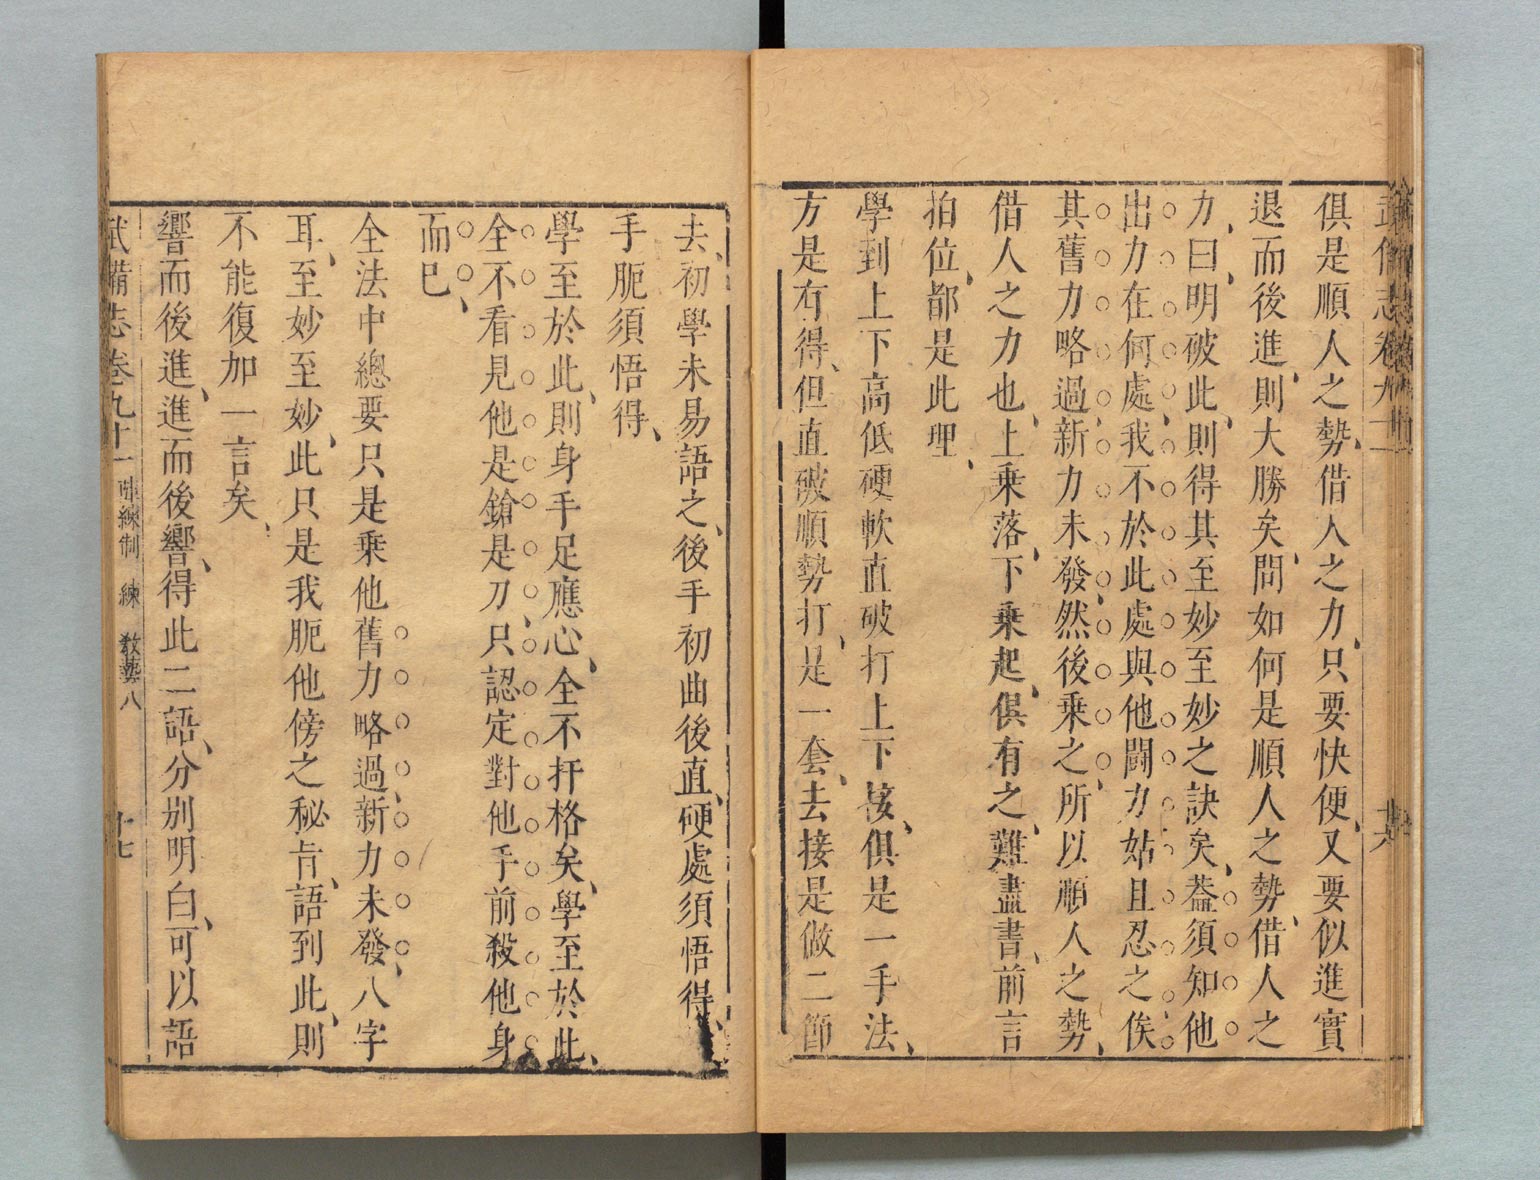 俱是順人之勢、借人之力、只要快便、又要似進實
退而後進、則大勝矣、問如何是順人之勢、借人之
力、曰、明破此、則得其至妙至妙之訣矣、葢須知他
出力在何處、我不於此處與他鬪力姑且忍之俟
其舊力略過、新力未發、然後乗之、所以順人之勢、
借人之力也、上乗落、下乗起、俱有之、難盡書、前言
拍位、都是此理、
學到上下高低硬軟直破打上下接、俱是一手法、
方是有得、但直破順勢打、是一套、去接是做二節
去、初學未易語之、後手初曲後直、硬處須悟得、
手軛須悟得、
學至於此、則身手足應心、全不扞格矣、學至於此、
全不看見他是鎗是刀、只認定對他手前殺他身
而已、
全法中總要只是乗他舊力略過、新力未發、八字
耳、至妙至妙、此只是我軛他傍之秘旨、語到此、則
不能復加一言矣、
響而後進、進而後響、得此二語、分别明白、可以語
武備志卷九十一 陣練制 練 教藝八 十七